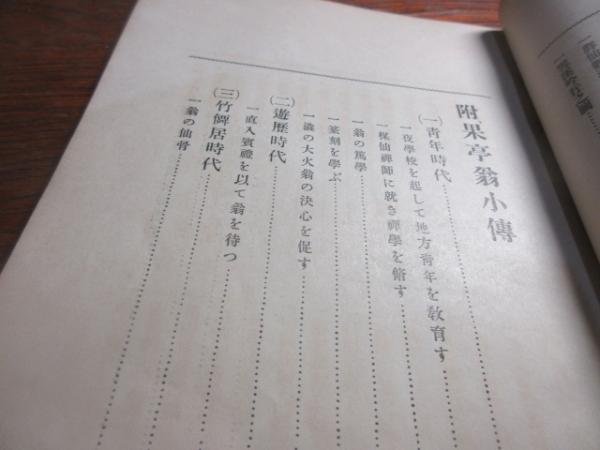 附果亭翁小傳
(一)靑年時代
一夜學校を起して地方靑年を敎育す
一梯仙禪師に就き禪學を脩す
一翁の篤學
一篆刻を學ぶ
一澁の大火翁の決心を促す
(二)遊歷時代
一直入賓禮を以て翁を待つ
(三)竹僊居時代
一翁の仙骨